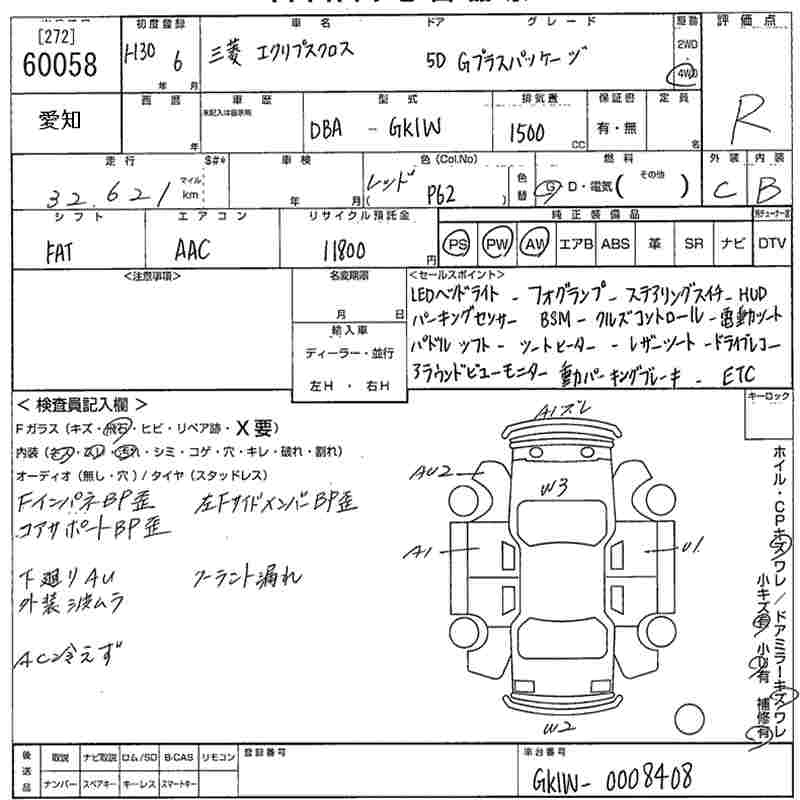 [272]
60058
初度登録
車名
ドア
グレード
駆動
評価点
H30 6
年 月
三菱 エクリプスクロス
5D Gプラスパッケージ
2WD
4WD
R
愛知
西暦
年
車歴
未記入は自家用
型式
DBA - GK1W
排気量
1500
CC
保証書
有・無
定員
名
走行
32,621
マイル
km
S#*
車検
年 月
色(Col.No)
レッド
( P62 )
色替
燃料
G・D・電気( その他 )
外装
内装
C
B
シフト
FAT
エアコン
AAC
リサイクル預託金
11800
円
純正装備品
PS PW AW エアB ABS 革 SR ナビ DTV
<注意事項>
名変期限
月 日
輸入車
ディーラー・並行
左H ・ 右H
<セールスポイント>
LEDヘッドライト - フォグランプ - ステアリングスイッチ - HUD
パーキングセンサー BSM - クルズコントロール - 電動シート
パドルシフト - シートヒーター - レザーシート - ドライブレコー
アラウンドビューモニター 電動パーキングブレーキ - ETC
キーロック
<検査員記入欄>
Fガラス(キズ・飛石・ヒビ・リペア跡・X要)
内装(キズ・スレ・汚れ・シミ・コゲ・穴・キレ・破れ・割れ)
オーディオ(無し・穴)/タイヤ(スタッドレス)
FインパネBP歪 左FサイドメンバーBP歪
コアサポートBP歪
下廻りAU クーラント漏れ
外装シ波ムラ
AC冷えず
A1ズレ
AU2
W3
A1
U1
W2
ホイル・CPキズワレ/ドアミラーキズワレ
小キズ有 小U有 補修有
後送品
取説 ナビ取説 ロム/SD B-CAS リモコン
ナンバー スペアキー キーレス スマートキー
登録番号
車台番号
GK1W-0008408